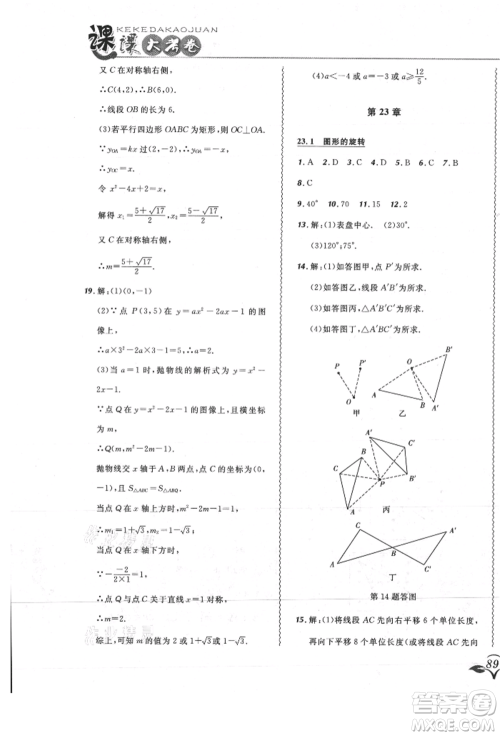 KEKEDAKAOJUAN
课课大考卷
又 C 在对称轴右侧,
∴C(4,6)或 B(6,0).
∴线段 OB 的长为 6.
(3)若平行四边形 OABC 为矩形,则 OC⊥OA.
∵y_OA=kx 过(2,-2),∴y_OA=-x.
y_OC=x.
令 x²-4x+2=x.
解得 x₁=(5+√17)/2,x₂=
又 C 在对称轴右侧,
∴m=(5+√17)/2.
19. 解:(1)(0,-1)
(2)∵点 P(3,5)在 y=ax²-2ax-1 的图
像上,
∴a×3²-2a×3-1=5.
(3)当 a=1 时,抛物线的解析式为 y=x²-
2x-1.
∵点 Q 在 y=x²-2x-1 的图像上,且横坐标
为 m,
∴Q(m,m²-2m-1).
抛物线交 y 轴于点 C,点 C 的坐标为(0,
-1).∵S△ABC=S△ABQ,
当点 Q 在 x 轴上方时,m²-2m-1=1.
∴m=1+√3,m=1-√3.
当点 Q 在 x 轴下方时,
m=--2/(2×1)×2=2.
∴m=2.
综上,可知 m=1+√3 或 1-√3 或 2.
(4)a<-4 或 a≥12/5.
第 23 章
23.1 图形的旋转
1. A 2. D 3. C 4. B 5. A 6. C 7. B
8. C
9. 40° 10. 70 11. 12 12. 2
13. 解:(1)表盘中心. (2)30°.
(3)120°;75°.
14. 解:(1)如答图甲,点 P′为所求.
(2)如答图乙,线段 A′B′为所求.
(3)如答图丙,△A′B′C′为所求.
(4)如答图丁,△A′B′C′为所求.
P P′ O
甲
O B′ A B A′
乙
A′ C B′ B C′ P A
丙
C A′ B A C′
丁
第 14 题答图
15. 解:(1)将线段 AC 先向右平移 6 个单位长度,
再向下平移 8 个单位长度(或将线段 AC 先
89
答案圈
MXQE.COM